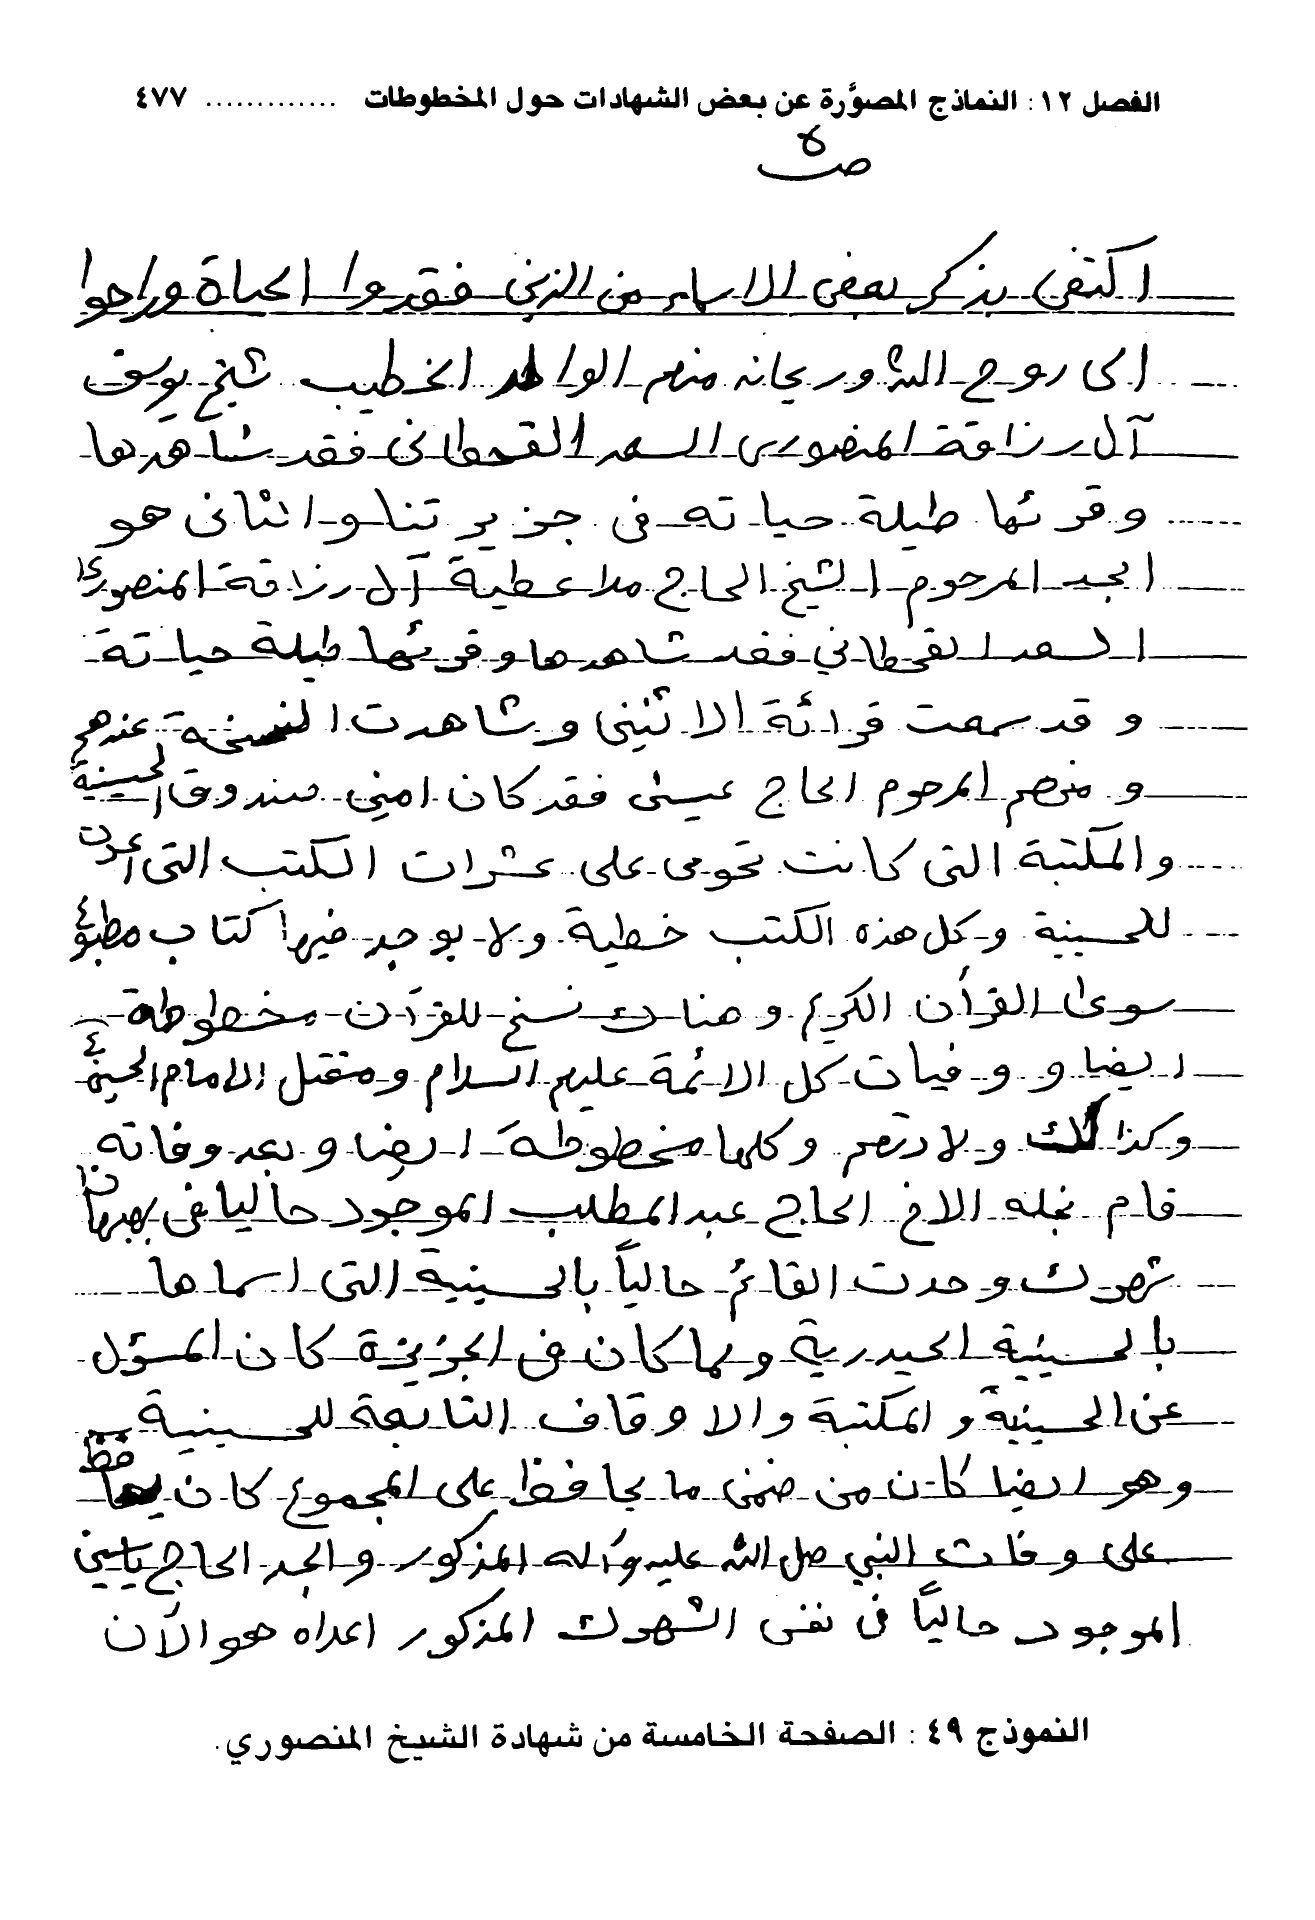 الفصل ١٢: النماذج المصوَّرة عن بعض الشهادات حول المخطوطات ............. ٤٧٧
ص ٥
اكتفي بذكر بعض الاسماء من الذين فقدوا الحياة وراحوا
الى روح الله وريحانه منهم الوالد الخطيب شيخ يوسف
آل رزاقة المنصوري السعد القحطاني فقد شاهدها
وقرئها طيلة حياته في جزير تنا والثاني هو
الجد المرحوم الشيخ الحاج ملا عطية آل رزاقة المنصوري
السعد القحطاني فقد شاهدها وقرئها طيلة حياتة
وقد سمعت قرائة الاثنين وشاهدت النسخة عندهم
ومنهم المرحوم الحاج عيسى فقد كان امين صندوق الحسينية
والمكتبة التي كانت تحوي على عشرات الكتب التي اعدت
للحسينية وكل هذه الكتب خطية ولا يوجد فيها كتاب مطبوع
سوى القرأن الكريم وهناك نسخ للقرآن مخطوطة
ايضا و وفيات كل الائمة عليهم السلام ومقتل الامام الحسين ع
وكذالك ولادتهم وكلها مخطوطة ايضا وبعد وفاته
قام نجله الاخ الحاج عبد المطلب الموجود حاليا في بهبهان
شهرك وحدت القائم حالياً بالحسينية التي اسماها
بالحسينية الحيدرية وبما كان في الجزيرة كان المسؤل
عن الحسينية و المكتبة والاوقاف التابعة للحسينية
وهو ايضا كان من ضمن ما يحافظ على المجموع كان يحافظ
على وفات النبي صل الله عليه وآله المذكور والجد الحاج ياسين
الموجود حالياً في نفس الشهرك المذكور اعلاه هو الآن
النموذج ٤٩: الصفحة الخامسة من شهادة الشيخ المنصوري.